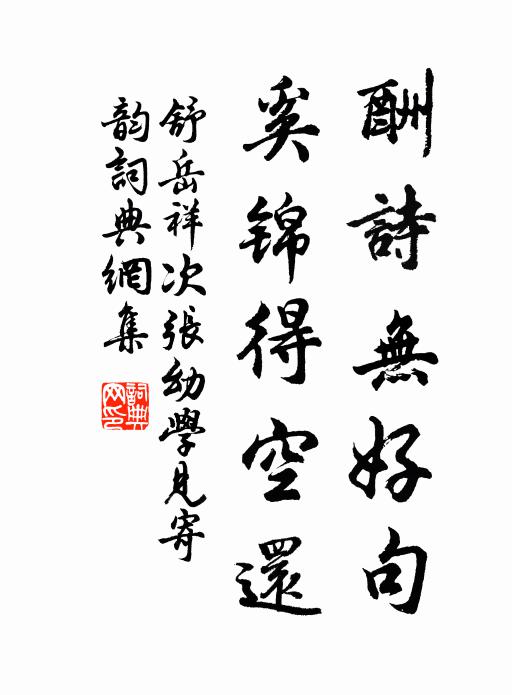 酬詩無好句
奚錦得空還
舒岳祥次張幼學見寄
韵詞典網集
詞典
网印